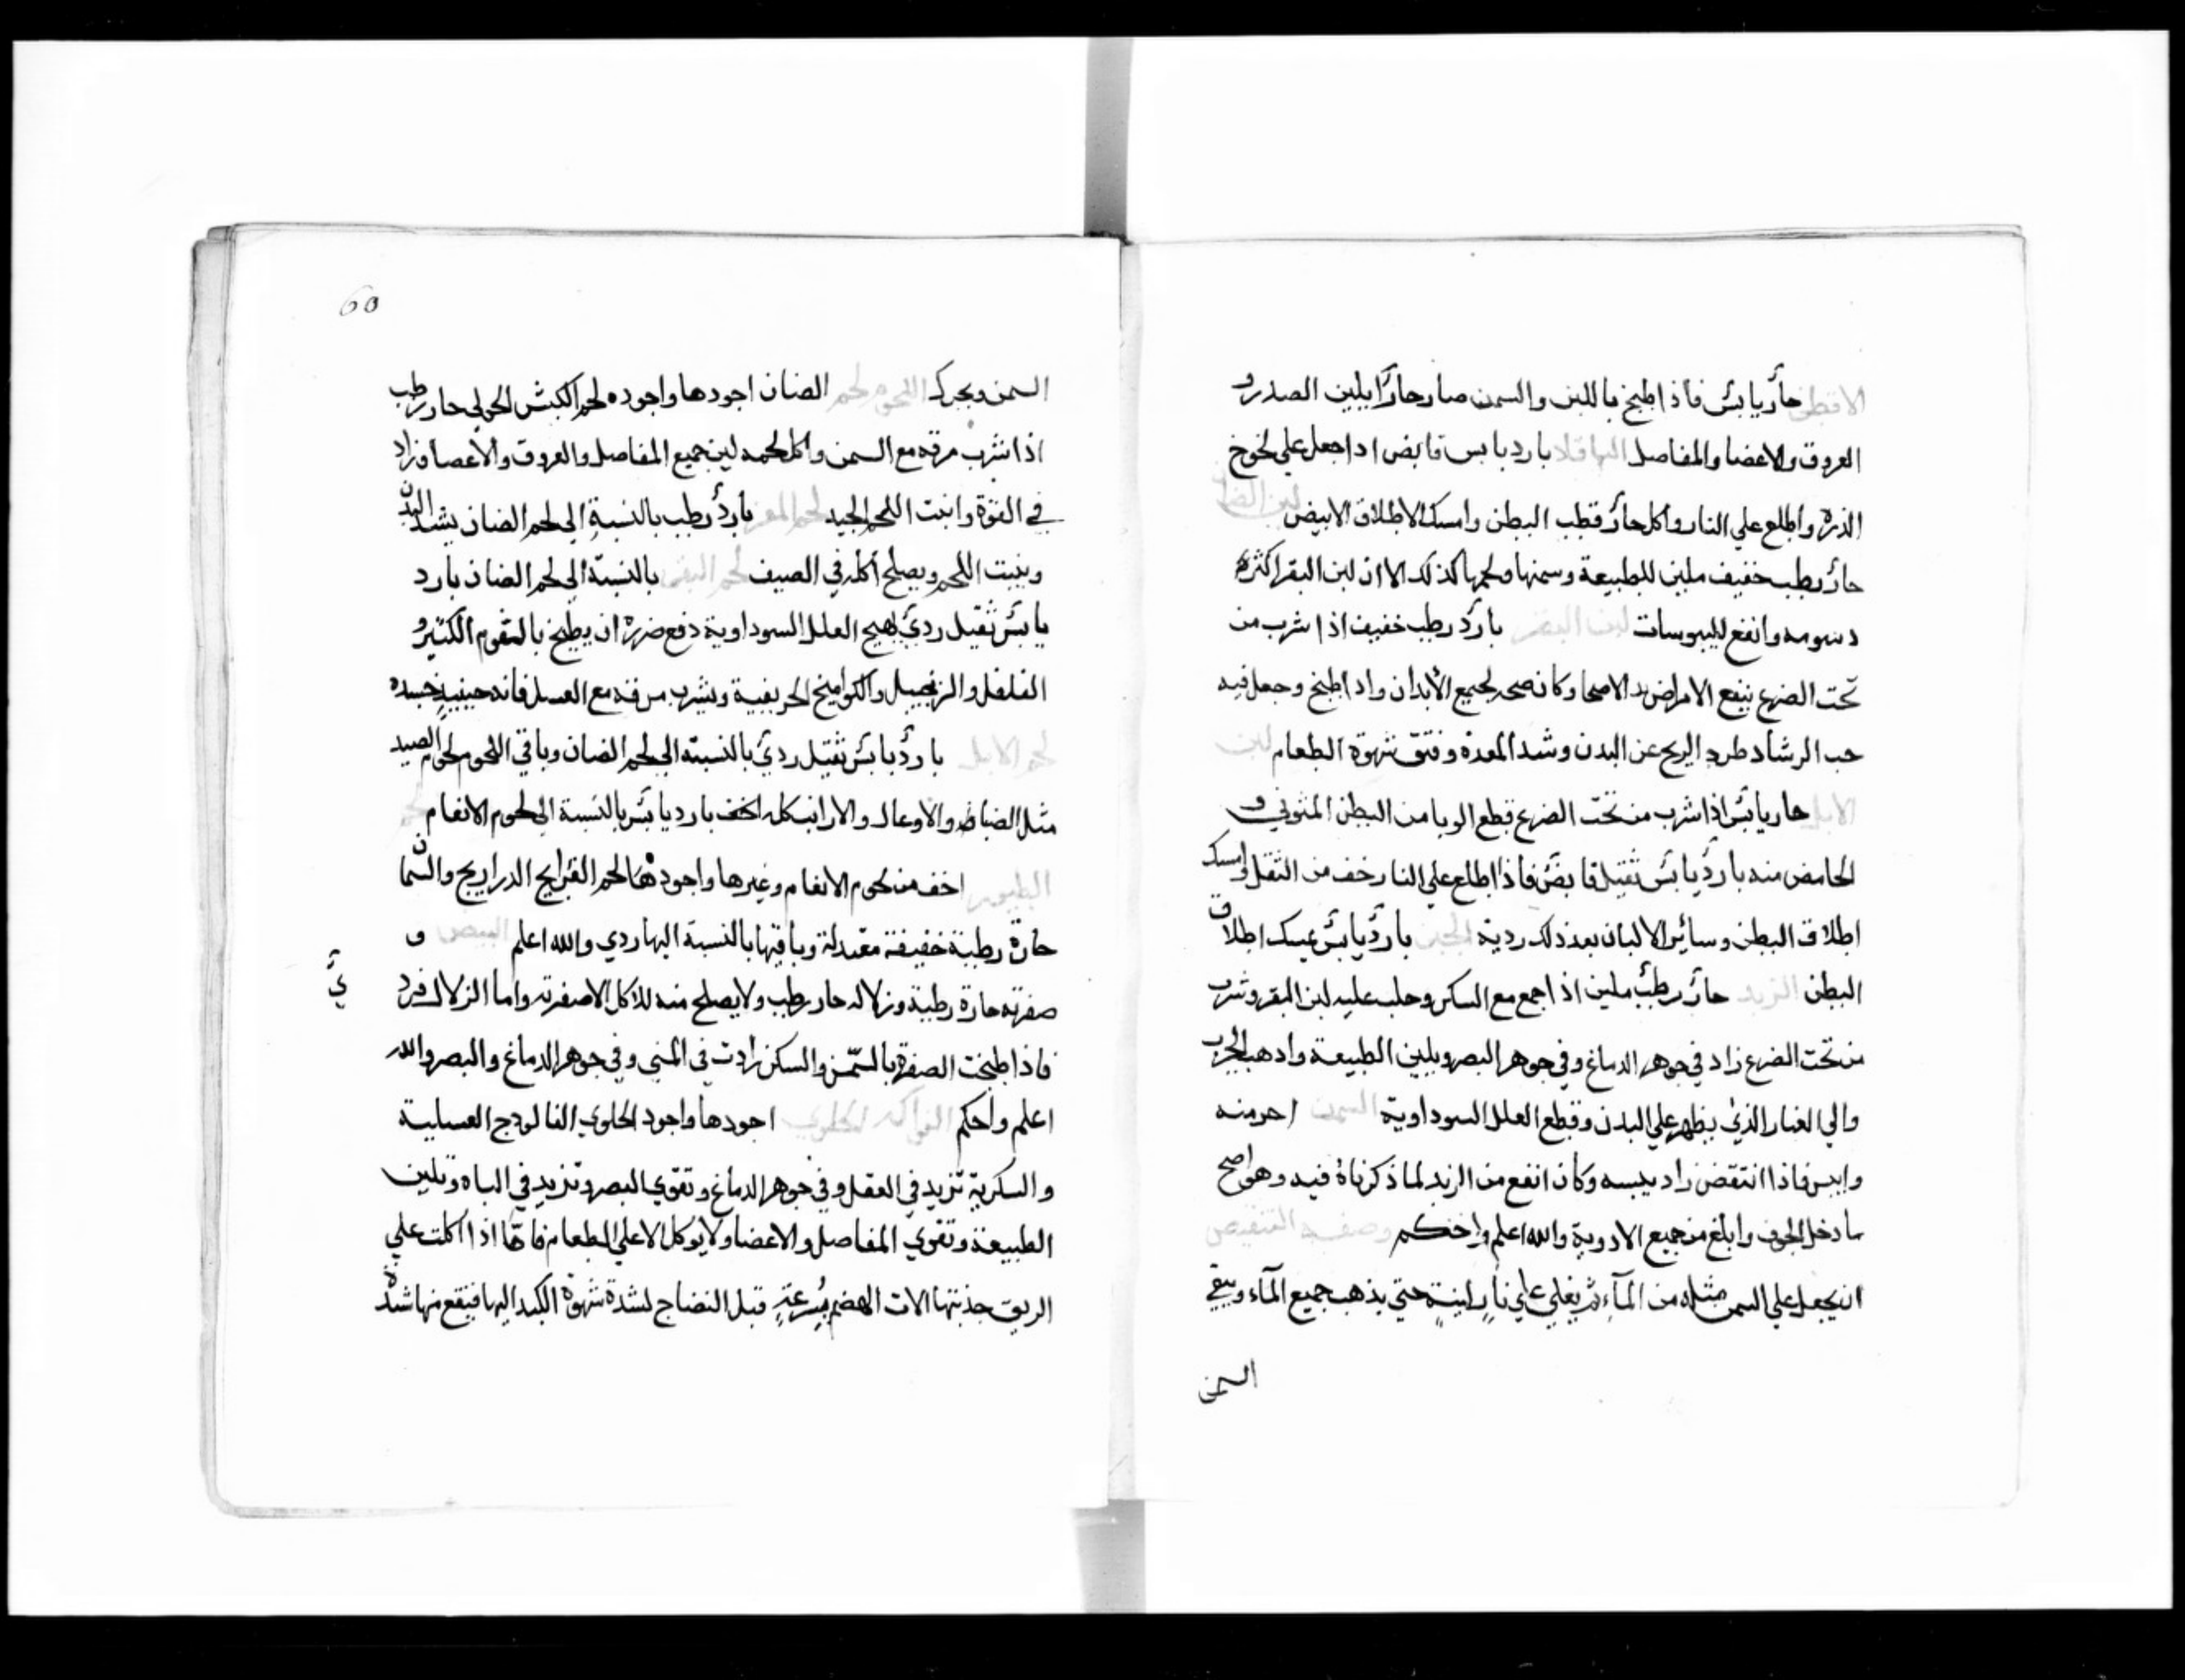 الاقطن حارٌ يابسٌ فاذا طبخ باللبن والسمن صار حارًا يلين الصدر و
العروق والاعضا والمفاصل الباقلا بارد يابس قابض اذا جعل علي لخوخ
الذرة واطلع علي النار واكل حارٌ قطب البطن وامسك الاطلاق الابيض لبن الضان
حارٌ رطب خفيف ملين للطبيعة وسمنها ولحمها كذلك الا ان لبن البقر اكثره
دسومه وانفع لليبوسات لبن البقر باردٌ رطب خفيف اذا شرب من
تحت الضرع ينفع الامراض الاصحا وكان صحه لجميع الأبدان واذا طبخ وجعل فيه
حب الرشاد طرد الريح عن البدن وشد المعدة وفتق شهوة الطعام لبن
الابل حار يابسٌ اذا شرب من تحت الضرع قطع الوبا من البطن المتوفي و
الحامض منه باردٌ يابسٌ ثقيل قابضٌ فاذا اطلع علي النار خف من الثقل وامسك
اطلاق البطن وسائر الالبان بعد ذلك ردية الجبن باردٌ يابسٌ يمسك اطلاق
البطن الزبد حارٌ رطبٌ ملين اذا جمع مع السكر وحلب عليه لبن البقر وشرب
من تحت الضرع زاد في جوهر الدماغ وفي جوهر البصر ويلين الطبيعة واذهب الجرب
والي الغبار الذي يظهر علي البدن وقطع العلل السوداوية السمن احر منه
وايبس فاذا انتقض زاد يبسه وكان انفع من الزبد لما ذكرناهُ فيه وهو اصح
ما دخل الجوف وابلغ من جميع الادوية والله اعلم واحكم وصفة التنقيص
ان يجعل علي السمن مثله من المآء ثم يغلي علي نارٍ لينةٍ حتي يذهب جميع المآء ويبقي
السمن
60
السمن ويجرك اللحوم لحم الضنان اجودها واجوده لحم الكبش الحولي حار رطب
اذا شرب مرقه مع السمن واكل لحمه لين جميع المفاصل والعروق والأعصا وزاد
في القوة وانبت اللحم الجيد لحم المعز باردٌ رطب بالنسبة الي لحم الضنان يشد البدن
وينبت اللحم ويصلح أكله في الصيف لحم البقر بالنسبة الي لحم الضنان بارد
يابسٌ ثقيل رديٌ يهيج العلل السوداوية دفع ضرره ان يطبخ بالثوم الكثير و
الفلفل والزنجبيل والكواميخ الحريفية ويشرب مرقه مع العسل فانه حينيذٍ جيده
لحم الابل باردٌ يابسٌ ثقيل رديٌ بالنسبة الي لحم الضنان وباقي اللحوم لحوم الصيد
مثل الضباط والاوعال والارانب كله اخف بارد يابسٌ بالنسبة الي لحوم الانعام لحم
الطيور اخف من لحوم الانعام وغيرها واجودها لحم الفراريج الدراريج والسمان
حارة رطبة خفيفة معتدلة وباقيها بالنسبة اليها ردي والله اعلم البيض و
صفرته حارة رطبة وزلاله حار رطب ولا يصلح منه للاكل الا صفرته واما الزلال فرد
يٌ
فاذا طبخت الصفرة بالسّمن والسكر زادت في المني وفي جوهر الدماغ والبصر والله
اعلم واحكم الفواكه الحلوي اجودها واجود الحلوي الفالودج العسلية
والسكرية تزيد في العقل وفي جوهر الدماغ وتقوي البصر وتزيد في الباه وتلين
الطبيعة وتقوي المفاصل والاعضا ولا يوكل الا علي الطعام فامّا اذا اكلت علي
الريق جذبتها الات الهضم بسرعةٍ قبل النضاج لشدة شهوة الكبد اليها فيقع منها شدةٌ